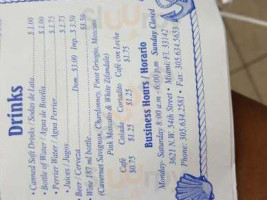 Drinks
• Canned Soft Drinks / Sodas de Lata $1.00
• Bottle of Water / Agua de Botella $1.00
• Perrier Water / Agua Perrier $1.75
• Juices / Jugos $1.75
• Beer / Cerveza Dom. $3.00 Imp. $3.50
• Wine 187 ml bottle $5.50
(Cabernet Sauvignon, Chardonnay, Pinot Grigio, Moscato
Pink Moscato & White Zinfandel)
Café Colada Cortadito Café con Leche
$0.75 $1.25 $1.25 $1.75
Business Hours / Horario
Monday - Saturday 8:00 a.m - 6:00 p.m Sunday Closed
3621 N.W. 54th Street • Miami, Fl. 33142
Phone: 305.634.2581 • Fax: 305.634.5658